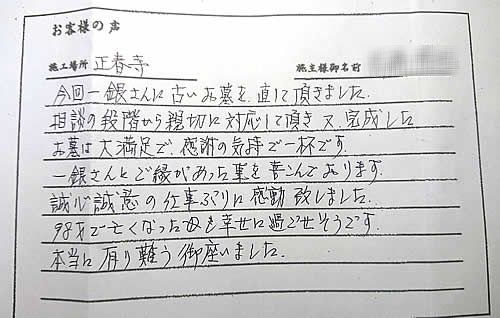 お客様の声
施工場所 正春寺 施主様御名前
今回一銀さんに古いお墓を直して頂きました。
相談の段階から親切に対応して頂き又、完成した
お墓は大満足で、感謝の気持で一杯です。
一銀さんとご縁があった事を喜こんで居ります。
誠心誠意の仕事ぶりに感動致しました。
98才で亡くなった母も幸せに過ごせそうです。
本当に有り難う御座いました。